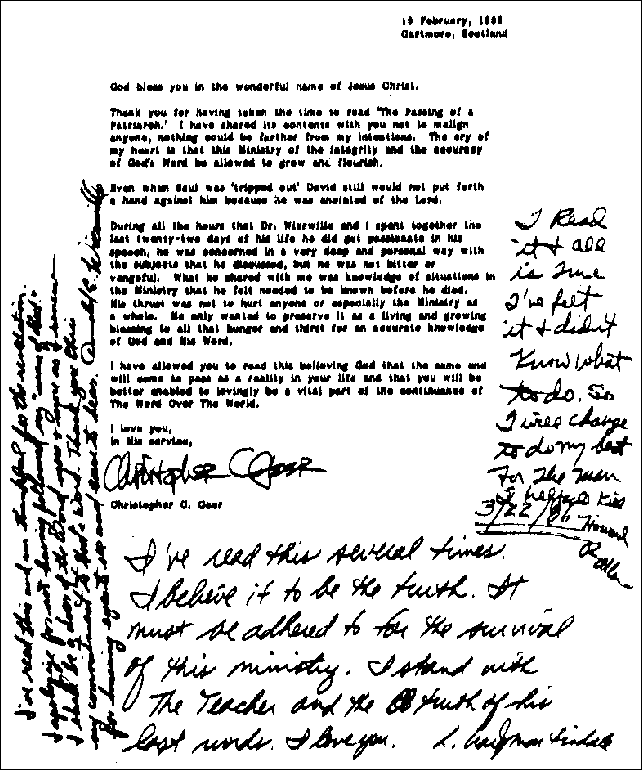 19 February, 1986
Gartmore, Scotland
God bless you in the wonderful name of Jesus Christ.
Thank you for having taken the time to read "The Passing of a
Patriarch." I have shared its contents with you not to malign
anyone, nothing could be further from my intentions. The cry of
my heart is that this Ministry of the integrity and the accuracy
of God's Word be allowed to grow and flourish.
Even when Saul was 'tripped out' David still would not put forth
a hand against him because he was anointed of the Lord.
During all the hours that Dr. Wierwille and I spent together the
last twenty-two days of his life he did get passionate in his
speech, he was concerned in a very deep and personal way with
the subjects that he discussed, but he was not bitter or
vengeful. What he shared with me was knowledge of situations in
the Ministry that he felt needed to be known before he died.
His thrust was not to hurt anyone or especially the Ministry as
a whole. He only wanted to preserve it as a living and growing
blessing to all that hunger and thirst for an accurate knowledge
of God and His Word.
I have allowed you to read this believing God that the same
will come to pass as a reality in your life and that you will be
better enabled to lovingly be a vital part of the continuance of
The Word Over The World.
I love you,
In His service,
Christopher C. Geer
Christopher C. Geer
I Read
it & all
is true
I've felt
it & didn't
Know what
to do. So
I will change
to do my best
For The man
I helped
3/22/86 Howard
Allen
I've read this several times.
I believe it to be the truth. It
must be adhered to for the survival
of this ministry. I stand with
The Teacher and the truth of his
last words. I love you. L. Craig Martindale
I've read this and am thankful for the revelation.
I apologize for not having followed my "man of God."
I shall be a doer of the Word, you have my
my commitment to God's Word. Thank you
for having